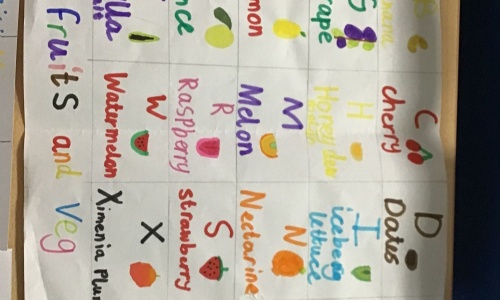 C
D
cherry
Dates
G
H
I
rape
Honeydew
iceberg
lettuce
M
N
mon
Melon
Nectarine
R
S
nce
Raspberry
strawberry
W
X
lla
Watermelon
Ximenia Plu
fruits and veg